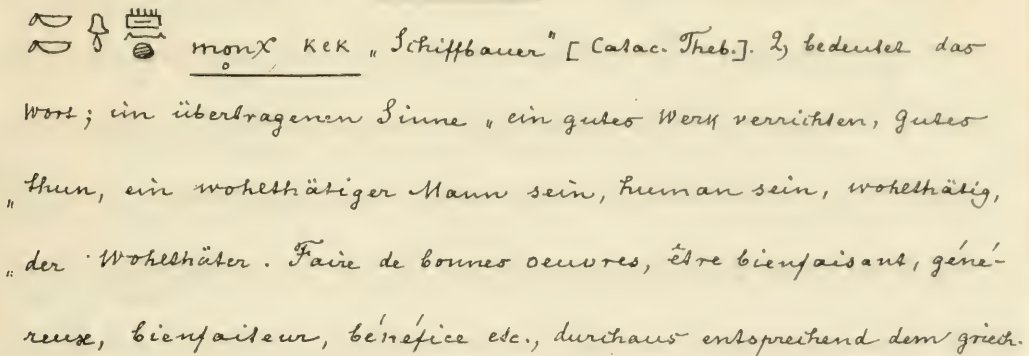 monχ kek „Schiffbauer" [Catac. Theb.]. 2, bedeutet das
Wort; im übertragenen Sinne „ein gutes Werk verrichten, Gutes
„thun, ein wohlthätiger Mann sein, human sein, wohlthätig,
„der Wohlthäter. Faire de bonnes oeuvres, être bienfaisant, géné-
reux, bienfaiteur, bénéfice etc., durchaus entsprechend dem griech.